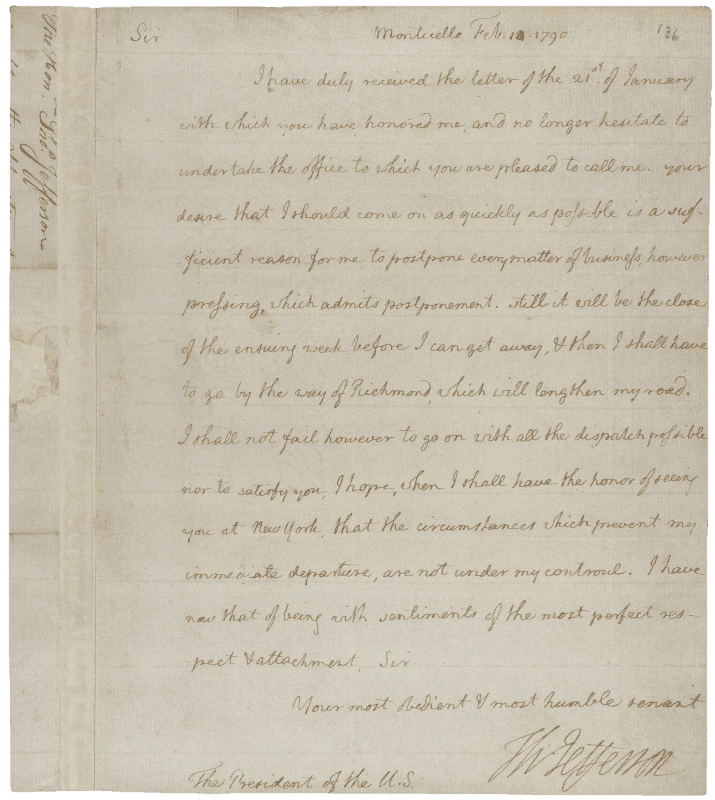 Sir Monticello Feb. 1790 136
I have duly received the letter of the 21st. of January
with which you have honored me, and no longer hesitate to
undertake the office to which you are pleased to call me. your
desire that I should come on as quickly as possible is a suf-
-ficient reason for me to postpone every matter of business, however
pressing, which admits postponement. still it will be the close
of the ensuing week before I can get away, & then I shall have
to go by the way of Richmond, which will lengthen my road.
I shall not fail however to go on with all the dispatch possible
nor to satisfy you, I hope, when I shall have the honor of seeing
you at New York, that the circumstances which prevent my
immediate departure, are not under my controul. I have
now that of being with sentiments of the most perfect res-
pect & attachment, Sir
Your most obedient & most humble servant
Th: Jefferson
The President of the U.S.
The Hon. Tho. Jefferson